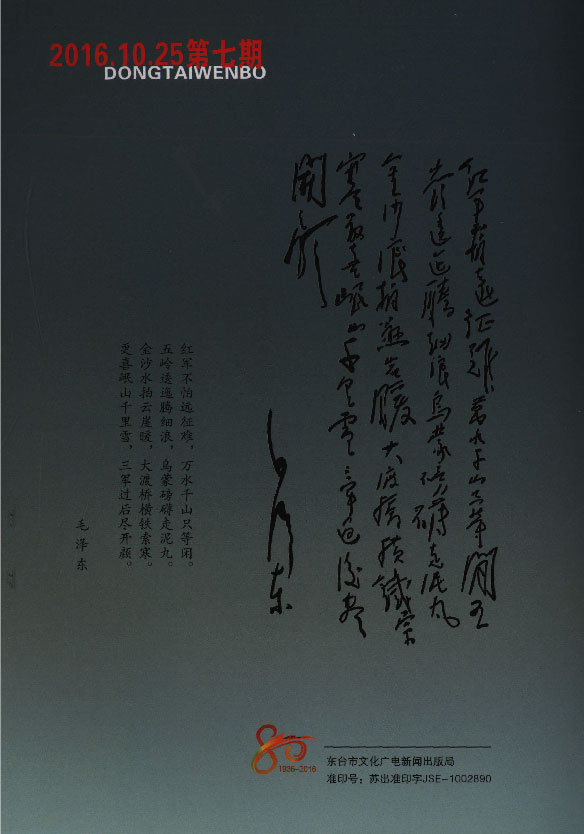 2016.10.25第七期
DONGTAIWENBO
红军不怕远征难萬水千山只等閒五
岭逶迤腾细浪乌蒙磅礴走泥丸
金沙浪拍悬岩暖大渡桥横鐵索
寒更喜岷山千里雪三军过后尽
開颜
毛泽东
红军不怕远征难，万水千山只等闲。
五岭逶迤腾细浪，乌蒙磅礴走泥丸。
金沙水拍云崖暖，大渡桥横铁索寒。
更喜岷山千里雪，三军过后尽开颜。
毛泽东
80
1936-2016
东台市文化广电新闻出版局
准印号：苏出准印字JSE-1002890